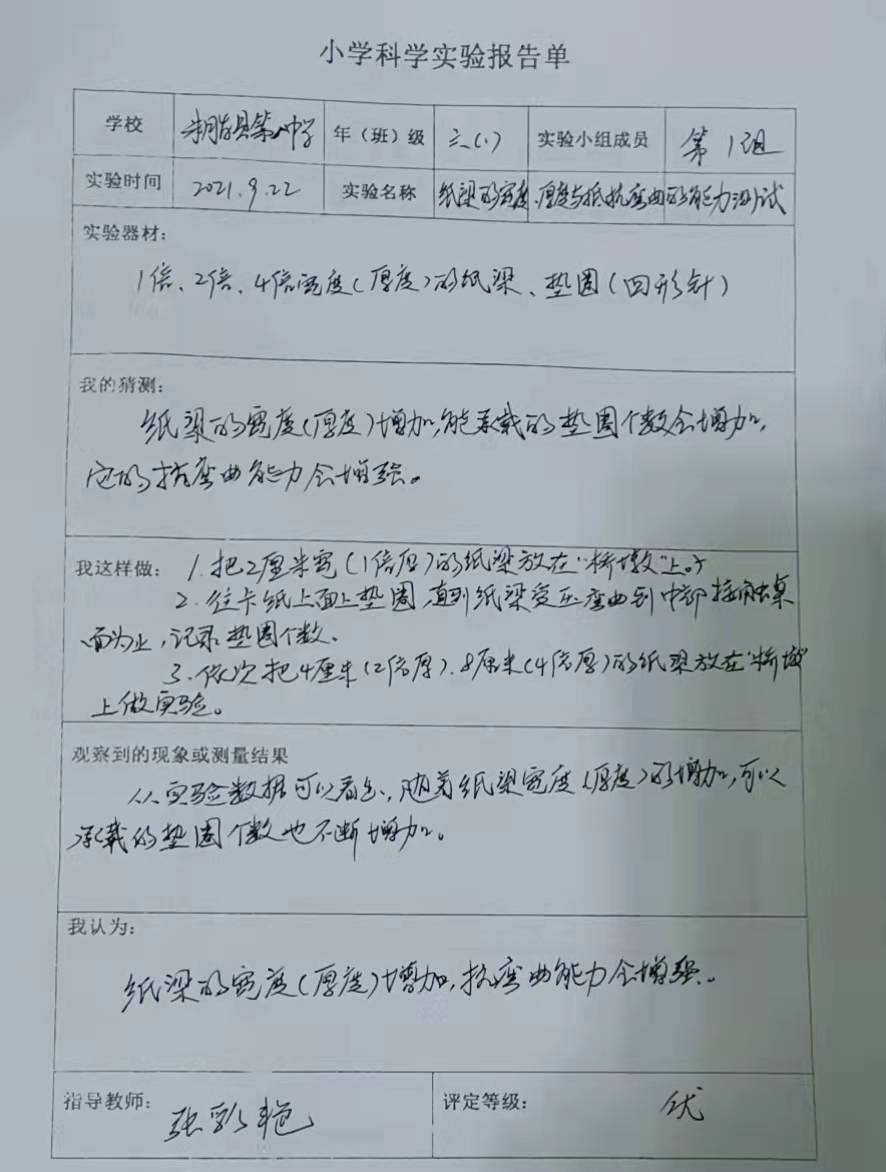 小学科学实验报告单
学校 县第八中学 年(班)级 六(1) 实验小组成员 第1组
实验时间 2021.9.22 实验名称 纸梁的宽度、厚度与抵抗弯曲的能力测试
实验器材:
1倍、2倍、4倍宽度(厚度)的纸梁、垫圈(回形针)
我的猜测:
纸梁的宽度(厚度)增加,能承载的垫圈个数会增加,
它的抗弯曲能力会增强。
我这样做: 1.把2厘米宽(1倍厚)的纸梁放在“桥墩”上。
2.往卡纸上面上垫圈,直到纸梁受压弯曲到中部接触桌
面为止,记录垫圈个数、
3.依次把4厘米(2倍厚).8厘米(4倍厚)的纸梁放在“桥墩”
上做实验。
观察到的现象或测量结果
从实验数据可以看出,随着纸梁宽度(厚度)的增加,可以
承载的垫圈个数也不断增加。
我认为:
纸梁的宽度(厚度)增加,抗弯曲能力会增强。
指导教师: 张 艳 评定等级: 优